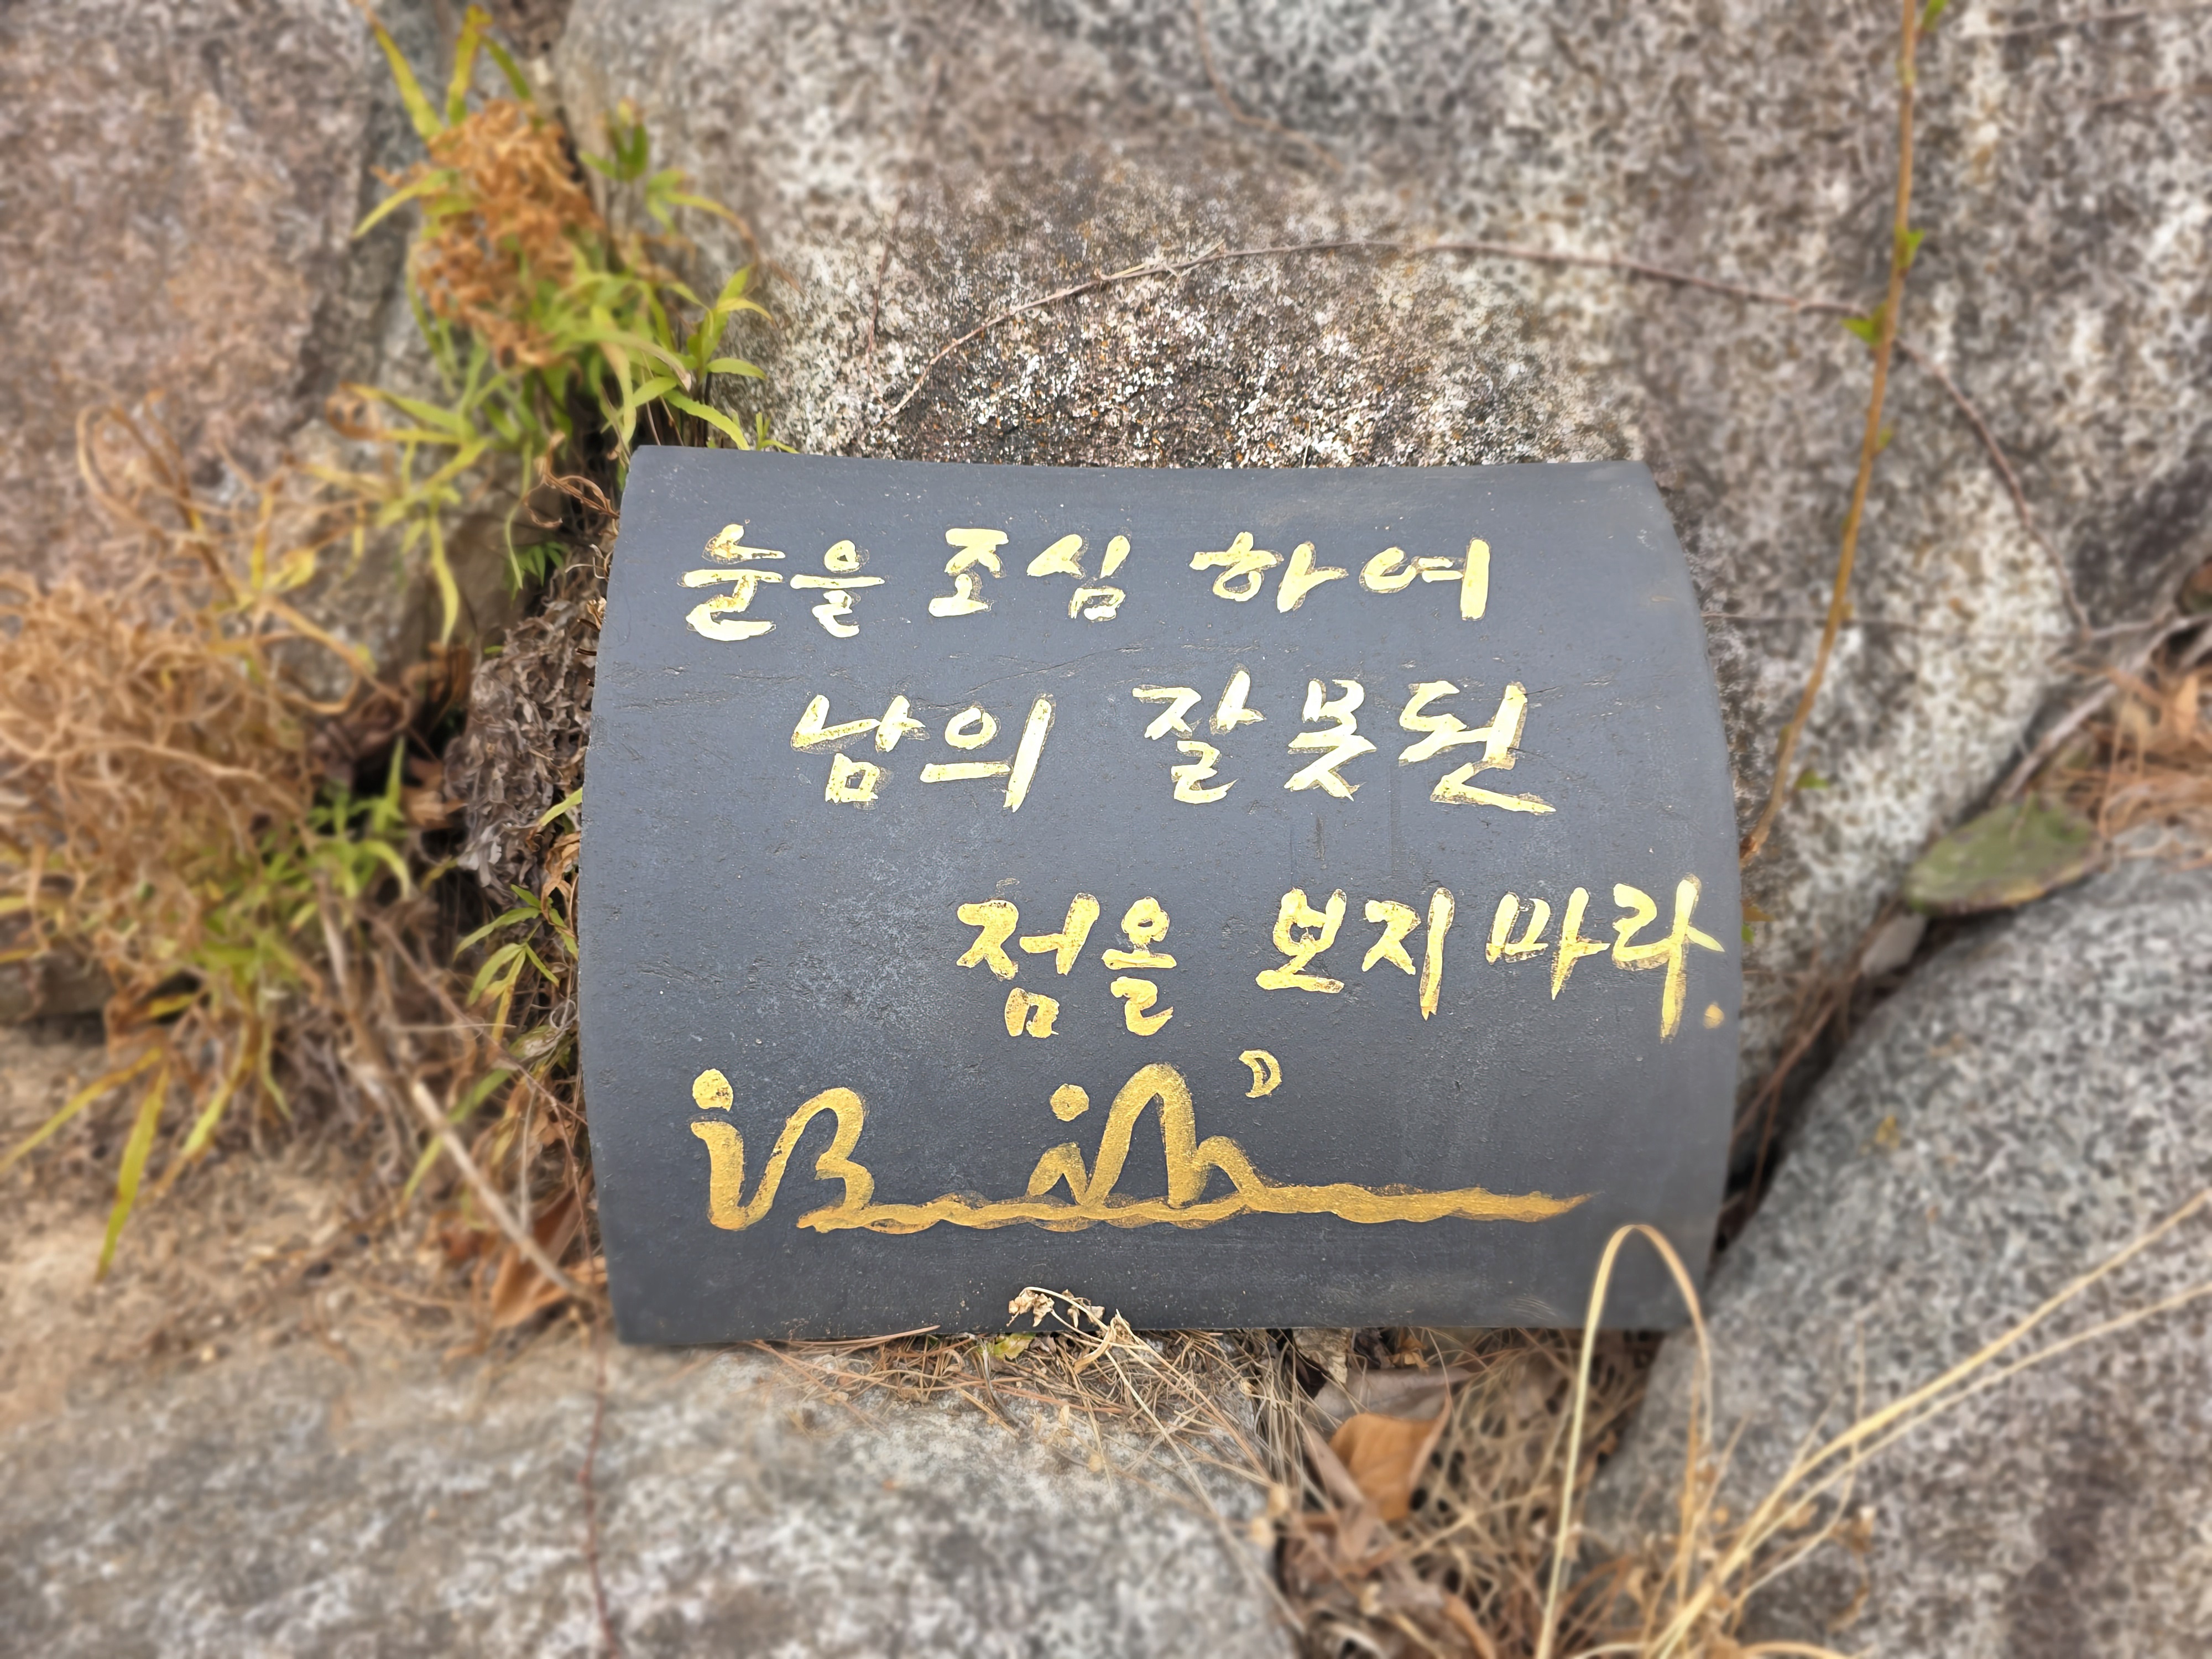 눈을 조심 하여
남의 잘못된
점을 보지 마라.